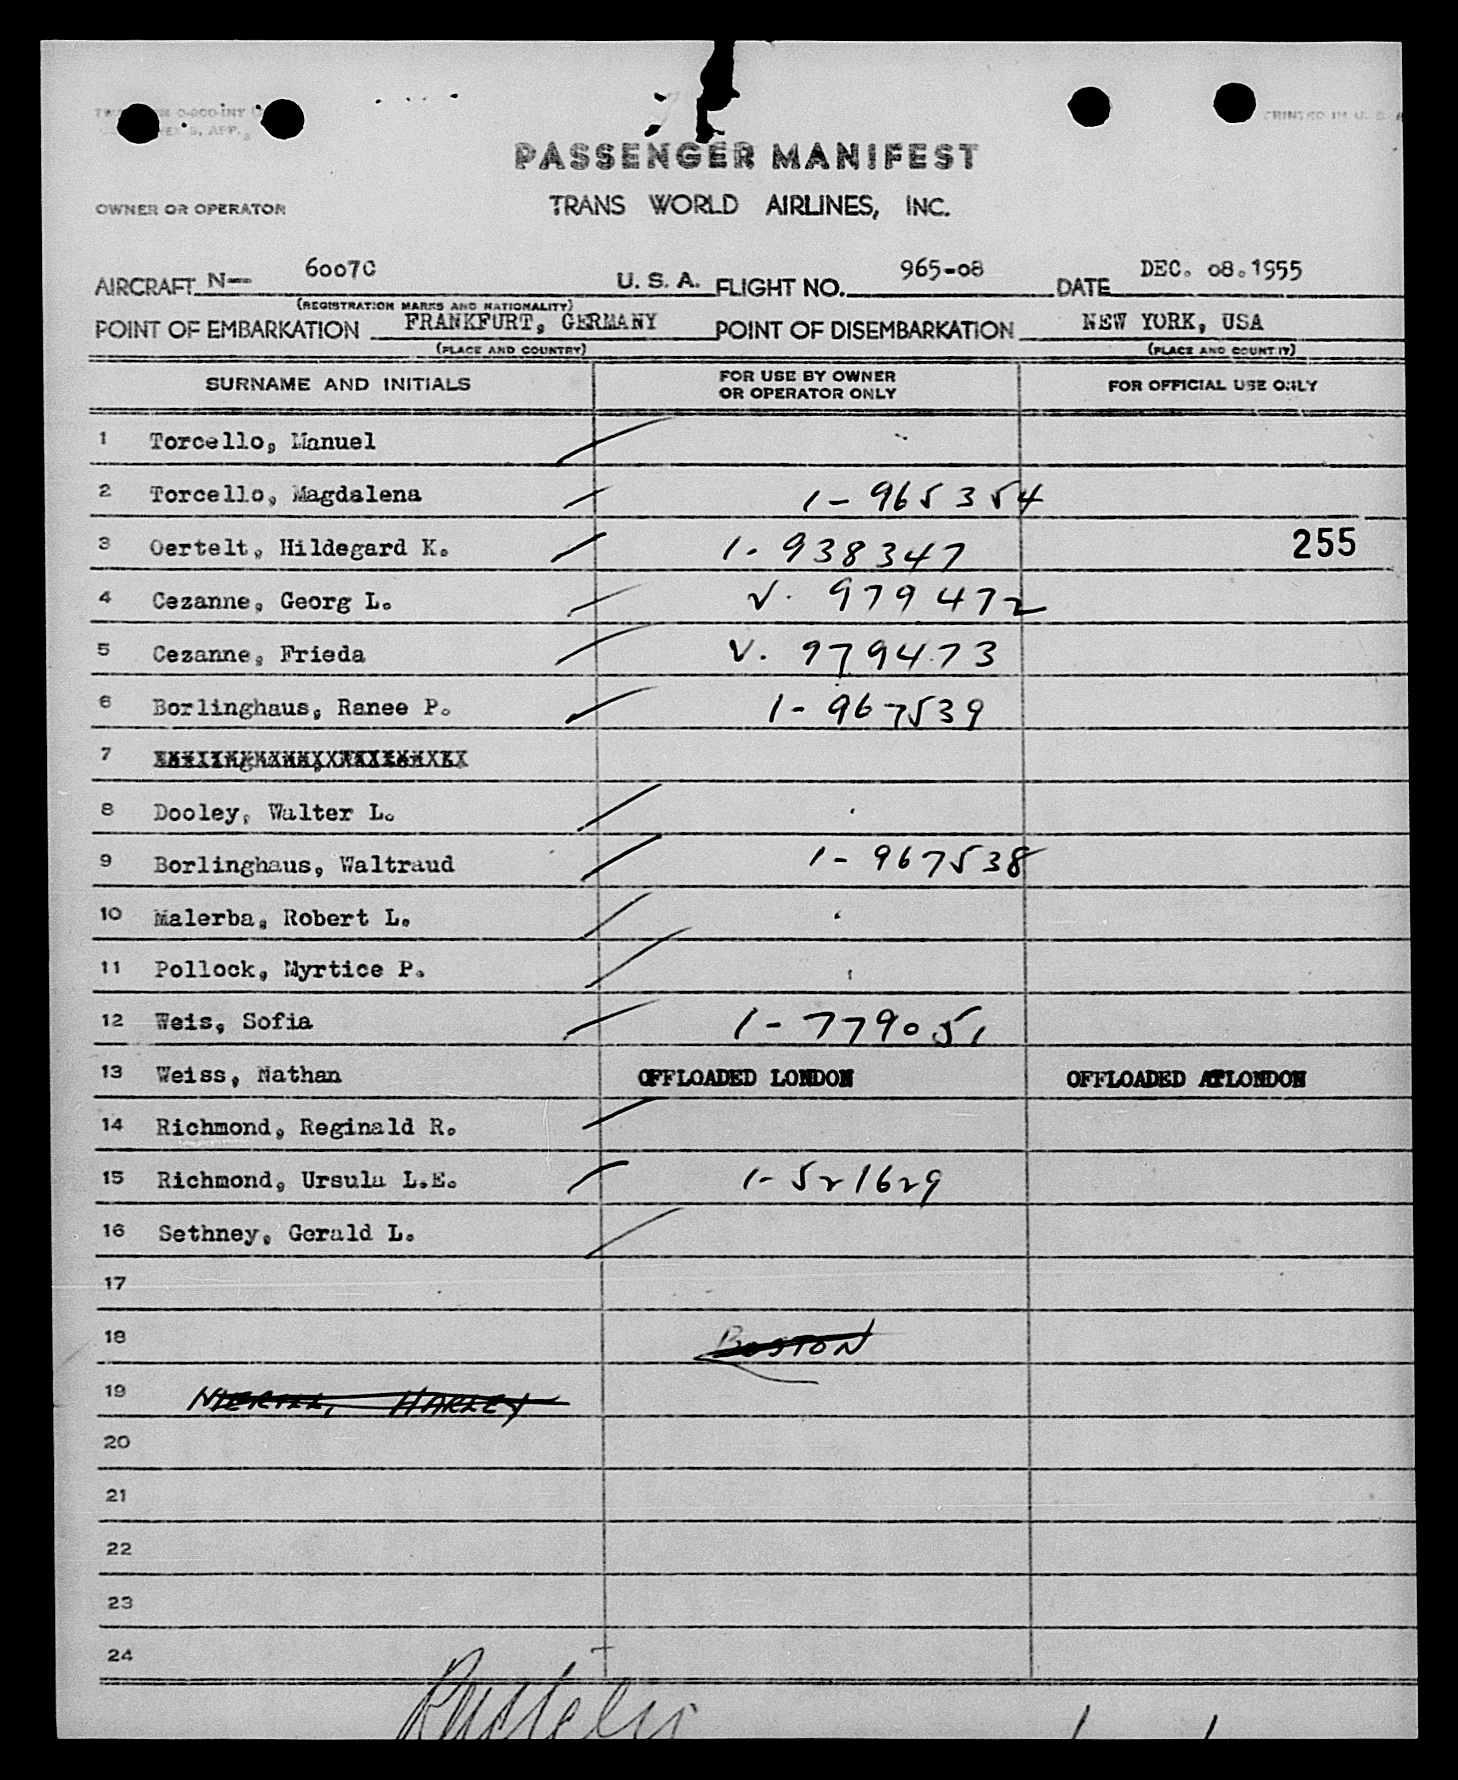 PRINTED IN U. S. A
PASSENGER MANIFEST
OWNER OR OPERATOR TRANS WORLD AIRLINES, INC.
AIRCRAFT N-- 6007C U. S. A. FLIGHT NO. 965-08 DATE DEC. 08.1955
(REGISTRATION MARKS AND NATIONALITY)
POINT OF EMBARKATION FRANKFURT, GERMANY POINT OF DISEMBARKATION NEW YORK, USA
(PLACE AND COUNTRY) (PLACE AND COUNTRY)
SURNAME AND INITIALS FOR USE BY OWNER OR OPERATOR ONLY FOR OFFICIAL USE ONLY
1 Torcello, Manuel
2 Torcello, Magdalena 1-965354
3 Oertelt, Hildegard K. 1-938347 255
4 Cezanne, Georg L. V. 979472
5 Cezanne, Frieda V. 979473
6 Borlinghaus, Ranee P. 1-967539
7
8 Dooley, Walter L.
9 Borlinghaus, Waltraud 1-967538
10 Malerba, Robert L.
11 Pollock, Myrtice P.
12 Weis, Sofia 1-779051
13 Weiss, Nathan OFFLOADED LONDON OFFLOADED ATLONDON
14 Richmond, Reginald R.
15 Richmond, Ursula L.E. 1-521629
16 Sethney, Gerald L.
17
18 BOSTON
19 HARLEY
20
21
22
23
24